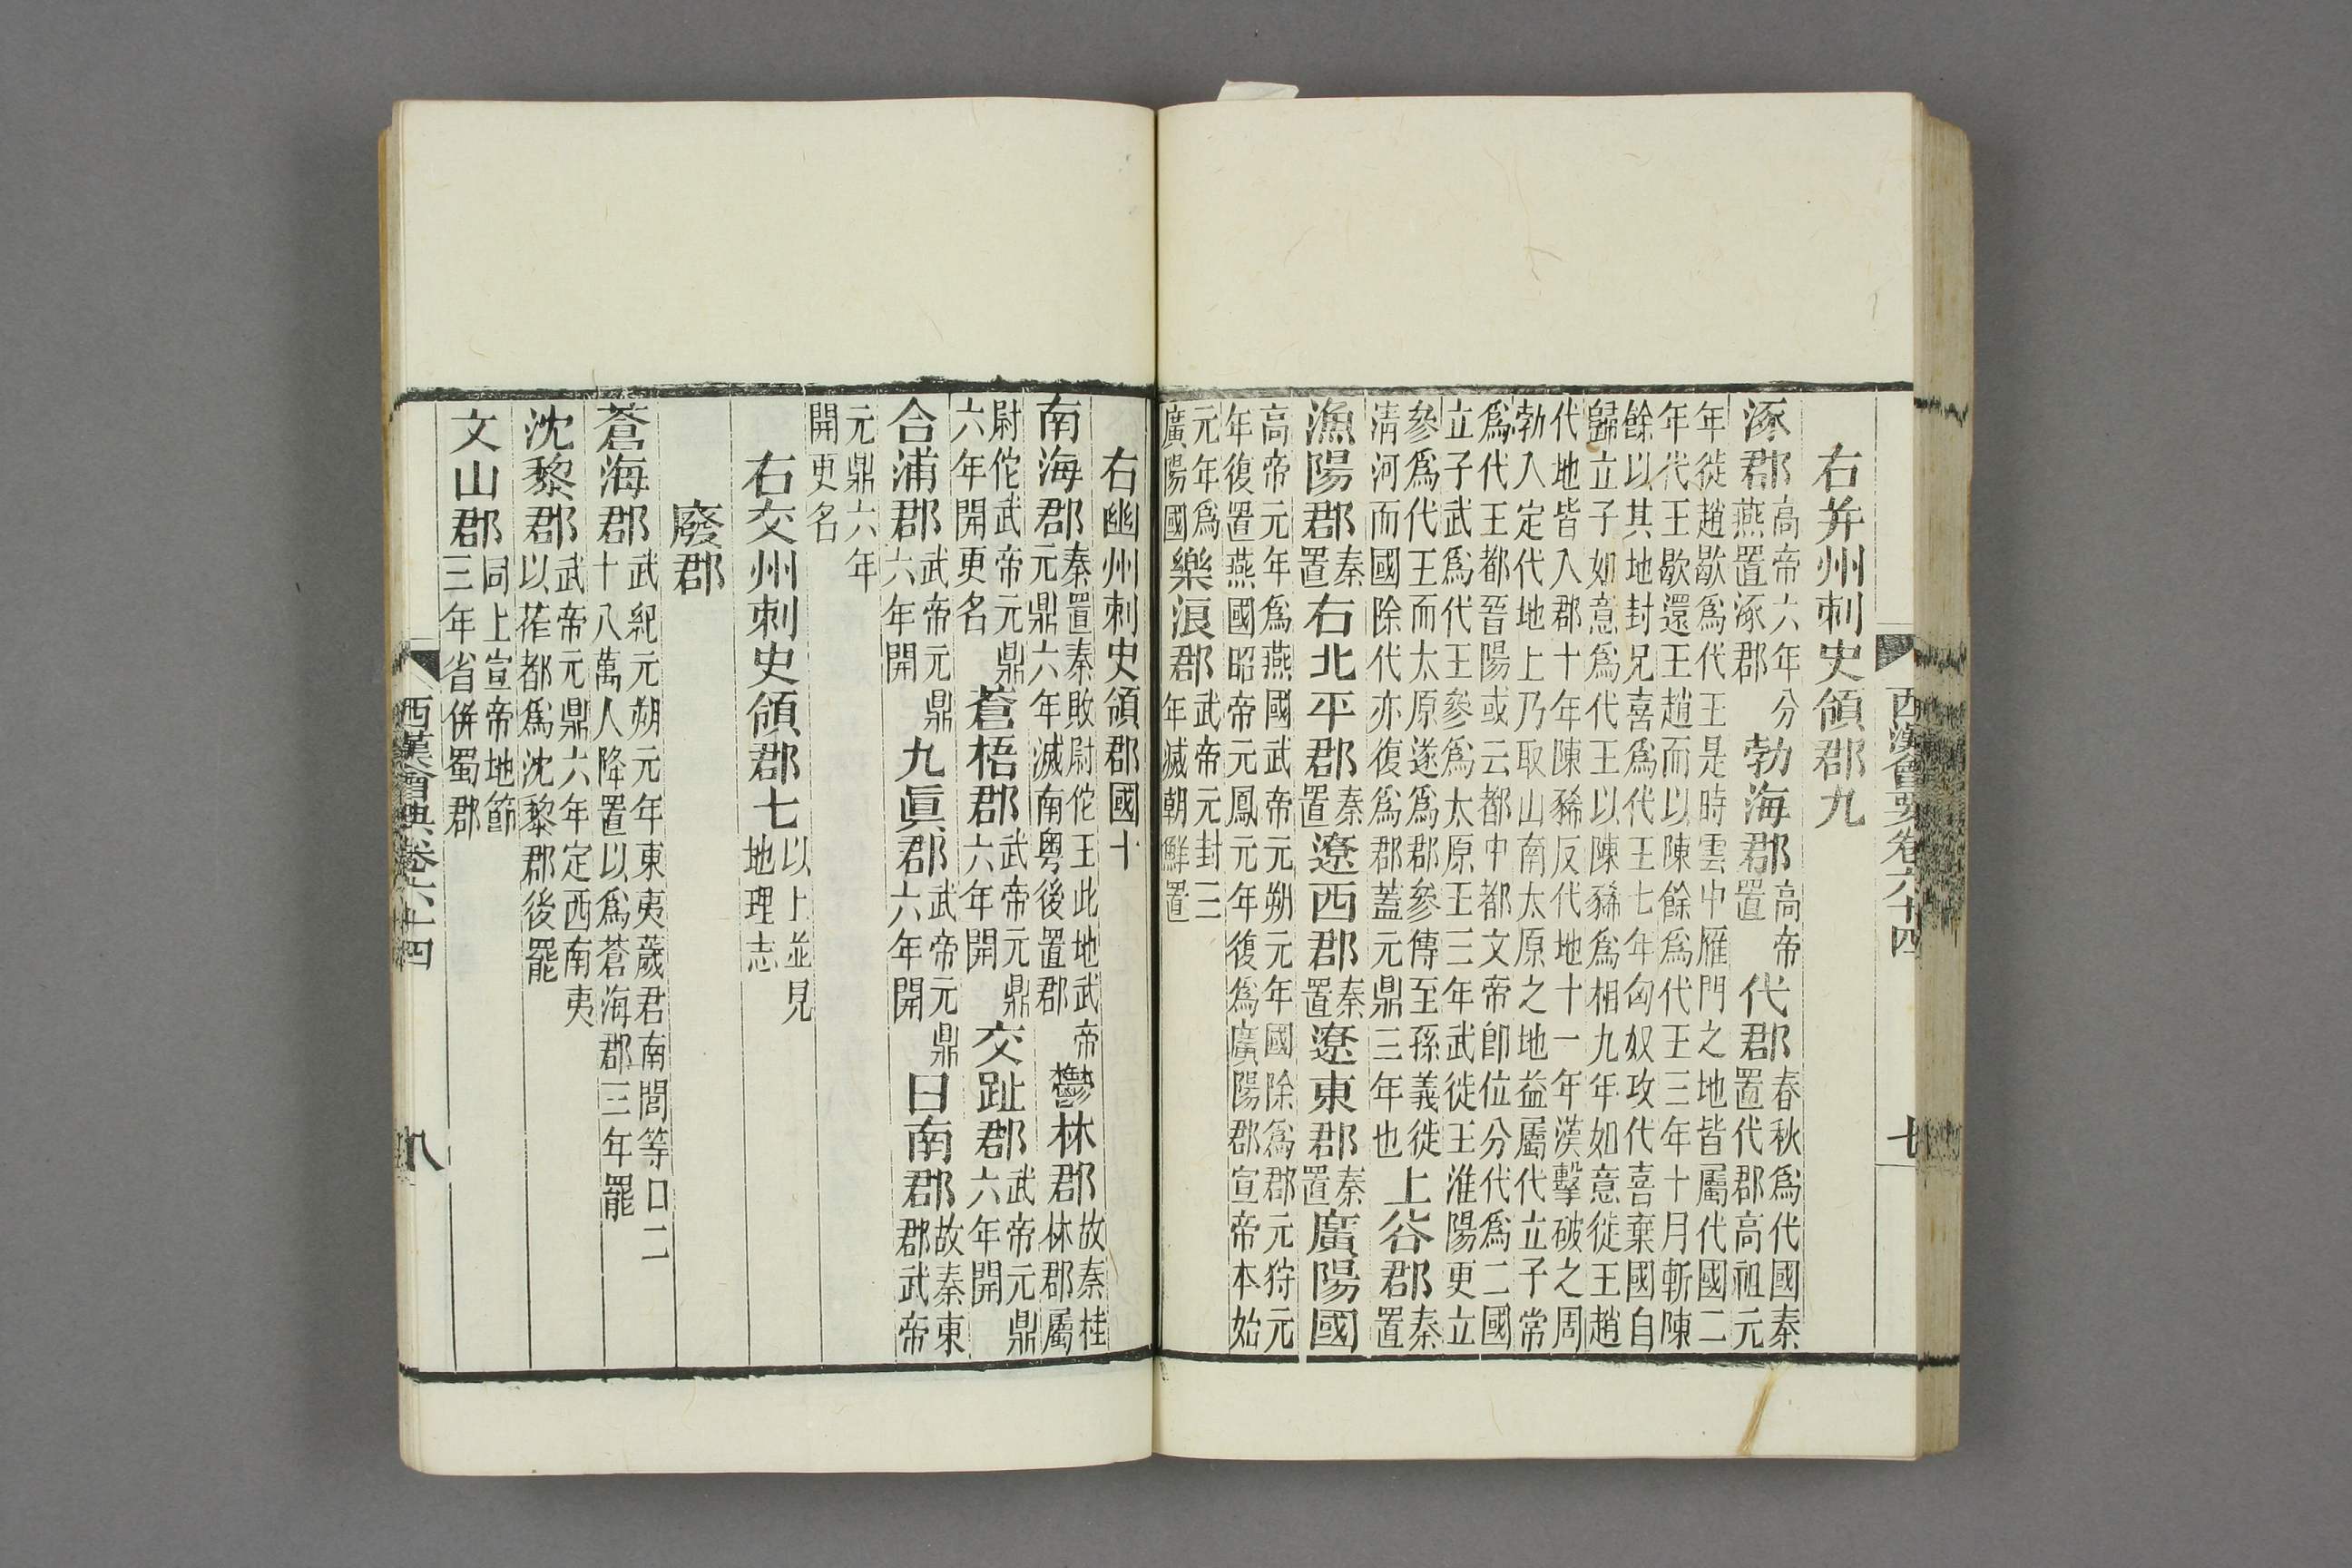 西漢會要卷六十四 七
右幷州刺史領郡九
涿郡高帝六年分燕置涿郡勃海郡高帝置代郡春秋爲代國秦置代郡高祖元
年徙趙歇爲代王是時雲中雁門之地皆屬代國二
年代王歇還王趙而以陳餘爲代王三年十月斬陳
餘以其地封兄喜爲代王七年匈奴攻代喜棄國自
歸立子如意爲代王以陳豨爲相九年如意徙王趙
代地皆入郡十年陳豨反代地十一年漢擊破之周
勃入定代地上乃取山南太原之地益屬代立子常
爲代王都晉陽或云都中都文帝卽位分代爲二國
立子武爲代王參爲太原王三年武徙王淮陽更立
參爲代王而太原遂爲郡參傳至孫義徙
清河而國除代亦復爲郡蓋元鼎三年也上谷郡秦置
漁陽郡秦置右北平郡秦置遼西郡秦置遼東郡秦置廣陽國
高帝元年爲燕國武帝元朔元年國除爲郡元狩元
年復置燕國昭帝元鳳元年復爲廣陽郡宣帝本始
元年爲廣陽國樂浪郡武帝元封三年滅朝鮮置
右幽州刺史領郡國十
南海郡秦置秦敗尉佗王此地武帝元鼎六年滅南粤後置郡鬱林郡故秦桂林郡屬
尉佗武帝元鼎六年開更名蒼梧郡武帝元鼎六年開交趾郡武帝元鼎六年開
合浦郡武帝元鼎六年開九眞郡武帝元鼎六年開日南郡故秦東郡武帝
元鼎六年開更名
右交州刺史領郡七以上並見地理志
廢郡
蒼海郡武紀元朔元年東夷薉君南閭等口二十八萬人降置以爲蒼海郡三年罷
沈黎郡武帝元鼎六年定西南夷以莋都爲沈黎郡後罷
文山郡同上宣帝地節三年省併蜀郡
西漢會要卷六十四 八